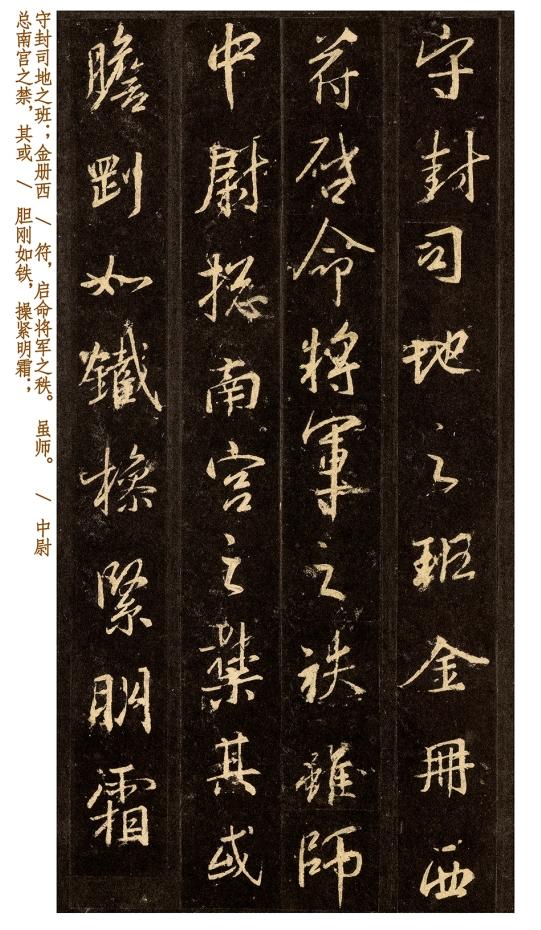 守封司地之班金冊西
符啓命將軍之秩雖師
中尉揔南宮之禁其或
膽剛如鐵操緊明霜
守封司地之班；金册西 / 符，启命将军之秩。 虽师。 / 中尉
总南宫之禁，其或 / 胆刚如铁，操紧明霜；